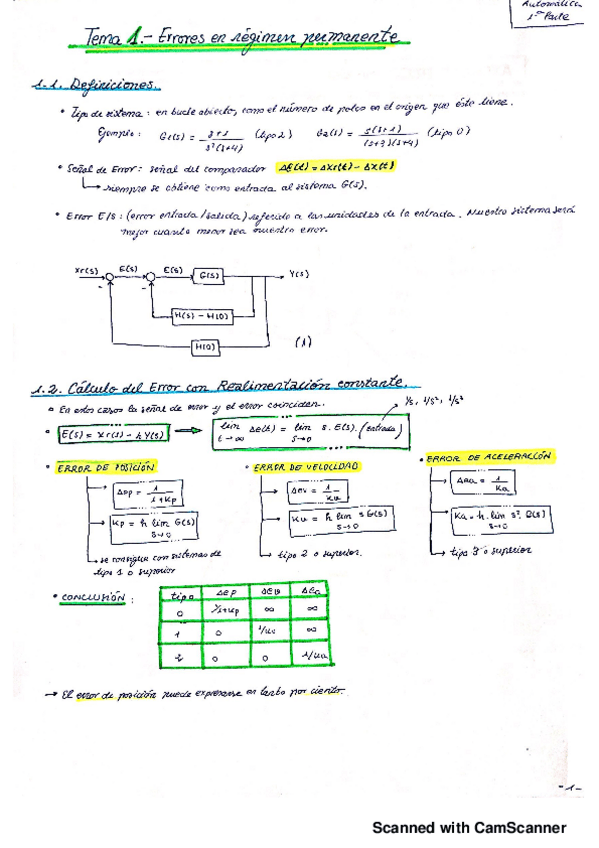 Automática
1ª Parte
Tema 1.- Errores en régimen permanente
1.1. Definiciones.
• Tipo de sistema: en bucle abierto, como el número de polos en el origen que éste tiene.
Ejemplo: G1(s) = s+1 / s²(s+4) (tipo 2) G2(s) = s(s+1) / (s+3)(s+4) (tipo 0)
• Señal de Error: señal del comparador ΔE(t) = ΔXr(t) - Δx(t)
siempre se obtiene como entrada al sistema G(s).
• Error E/S: (error entrada/salida) referido a las unidades de la entrada. Nuestro sistema será
mejor cuanto menor sea nuestro error.
Xr(s) E(s) E(s) G(s) Y(s)
H(s) - H(0)
H(0) (1)
1.2. Cálculo del Error con Realimentación constante.
• En estos casos la señal de error y el error coinciden. 1/s, 1/s², 1/s³
• E(s) = Xr(s) - h Y(s) → lim t→∞ Δe(t) = lim s→0 s. E(s). (entrada)
• ERROR DE POSICIÓN • ERROR DE VELOCIDAD • ERROR DE ACELERACIÓN
Δep = 1 / 1+Kp Δev = 1 / Kv Δea = 1 / Ka
Kp = h lim s→0 G(s) Kv = h lim s→0 s G(s) Ka = h. lim s→0 s². G(s)
se consigue con sistemas de tipo 2 o superior. tipo 3 o superior
tipo 1 o superior
• CONCLUSIÓN:
tipo Δep Δev Δea
0 1/1+Kp ∞ ∞
1 0 1/Kv ∞
2 0 0 1/Ka
→ El error de posición puede expresarse en tanto por ciento.
-1-
Scanned with CamScanner